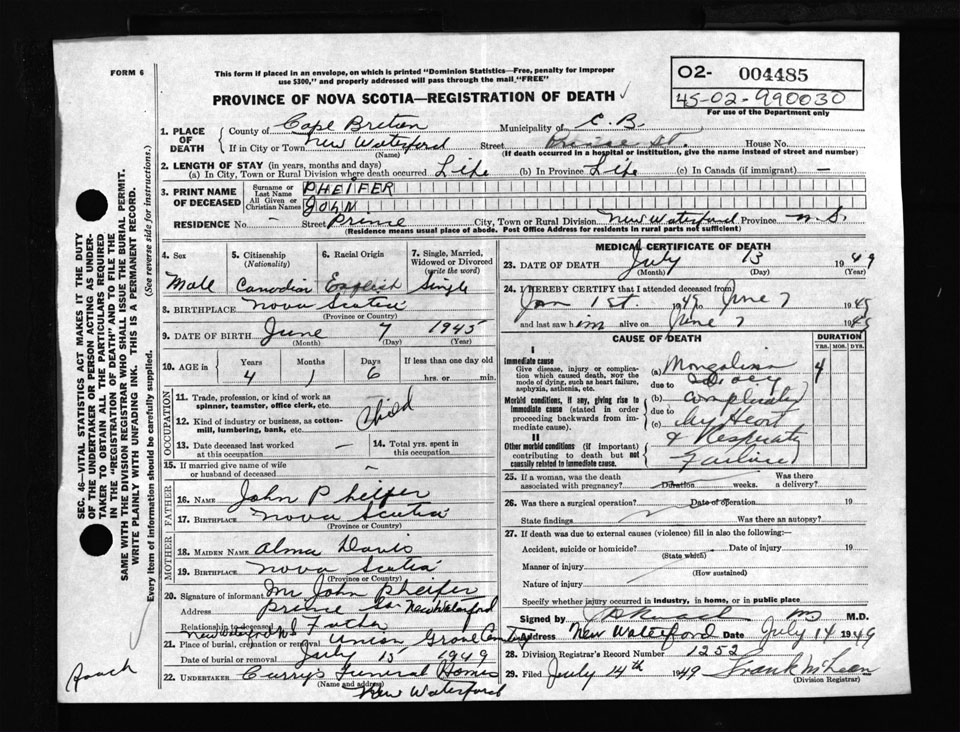 FORM 6
This form if placed in an envelope, on which is printed "Dominion Statistics—Free, penalty for improper
use $300," and properly addressed will pass through the mail "FREE"
O2- 004485
45-02-990030
For use of the Department only
PROVINCE OF NOVA SCOTIA—REGISTRATION OF DEATH
1. PLACE OF DEATH
County of Cape Breton Municipality of C. B.
If in City or Town New Waterford Street Prince St. House No.
(Name) (If death occurred in a hospital or institution, give the name instead of street and number)
2. LENGTH OF STAY (in years, months and days)
(a) In City, Town or Rural Division where death occurred Life (b) In Province Life (c) In Canada (if immigrant) —
3. PRINT NAME OF DECEASED
Surname or Last Name PHEIFER
All Given or Christian Names JOHN
RESIDENCE No. Street Prince City, Town or Rural Division New Waterford Province N. S.
(Residence means usual place of abode. Post Office Address for residents in rural parts not sufficient)
4. Sex Male
5. Citizenship (Nationality) Canadian
6. Racial Origin English
7. Single, Married, Widowed or Divorced (write the word) Single
8. BIRTHPLACE Nova Scotia
(Province or Country)
9. DATE OF BIRTH June 7 1945
(Month) (Day) (Year)
10. AGE in Years 4 Months 1 Days 6 If less than one day old hrs. or min.
OCCUPATION
11. Trade, profession, or kind of work as spinner, teamster, office clerk, etc.
12. Kind of industry or business, as cotton-mill, lumbering, bank, etc. Child
13. Date deceased last worked at this occupation
14. Total yrs. spent in this occupation
15. If married give name of wife or husband of deceased
FATHER
16. NAME John Pheifer
17. BIRTHPLACE Nova Scotia
(Province or Country)
MOTHER
18. MAIDEN NAME Alma Davis
19. BIRTHPLACE Nova Scotia
(Province or Country)
20. Signature of informant Mr John Pheifer
Address Prince New Waterford
Relationship to deceased Father
New Waterford NS
21. Place of burial, cremation or removal Union Grove Cem
Date of burial or removal July 15 1949
22. UNDERTAKER Currys Funeral Homes
(Name and address)
New Waterford
MEDICAL CERTIFICATE OF DEATH
23. DATE OF DEATH July 13 1949
(Month) (Day) (Year)
24. I HEREBY CERTIFY that I attended deceased from
Jan 1st. 1945 to June 7 1945
and last saw him alive on June 7 1945
CAUSE OF DEATH DURATION
YRS. MOS. DYS.
I
Immediate cause
Give disease, injury or complication which caused death, NOT the mode of dying, such as heart failure, asphyxia, asthenia, etc.
(a) Mongolian 4
due to Idiocy
Morbid conditions, if any, giving rise to immediate cause (stated in order proceeding backwards from immediate cause).
(b) complicated
due to
(c) by Heart
II
Other morbid conditions (if important) contributing to death but not causally related to immediate cause.
& Respiraty
Failure
25. If a woman, was the death associated with pregnancy? Duration weeks. Was there a delivery?
26. Was there a surgical operation? Date of operation 19
State findings Was there an autopsy?
27. If death was due to external causes (violence) fill in also the following:—
Accident, suicide or homicide? Date of injury 19
(State which)
Manner of injury
(How sustained)
Nature of injury
Specify whether injury occurred in industry, in home, or in public place
Signed by M.D.
Address New Waterford Date July 14 1949
28. Division Registrar's Record Number 1252
29. Filed July 14th 1949 Frank McLean
(Division Registrar)
SEC. 46—VITAL STATISTICS ACT MAKES IT THE DUTY
OF THE UNDERTAKER OR PERSON ACTING AS UNDER-
TAKER TO OBTAIN ALL THE PARTICULARS REQUIRED
IN THE "REGISTRATION OF DEATH" AND TO FILE THE
SAME WITH THE DIVISION REGISTRAR WHO SHALL ISSUE THE BURIAL PERMIT.
WRITE PLAINLY WITH UNFADING INK. THIS IS A PERMANENT RECORD.
Every item of information should be carefully supplied. (See reverse side for instructions.)
Roach